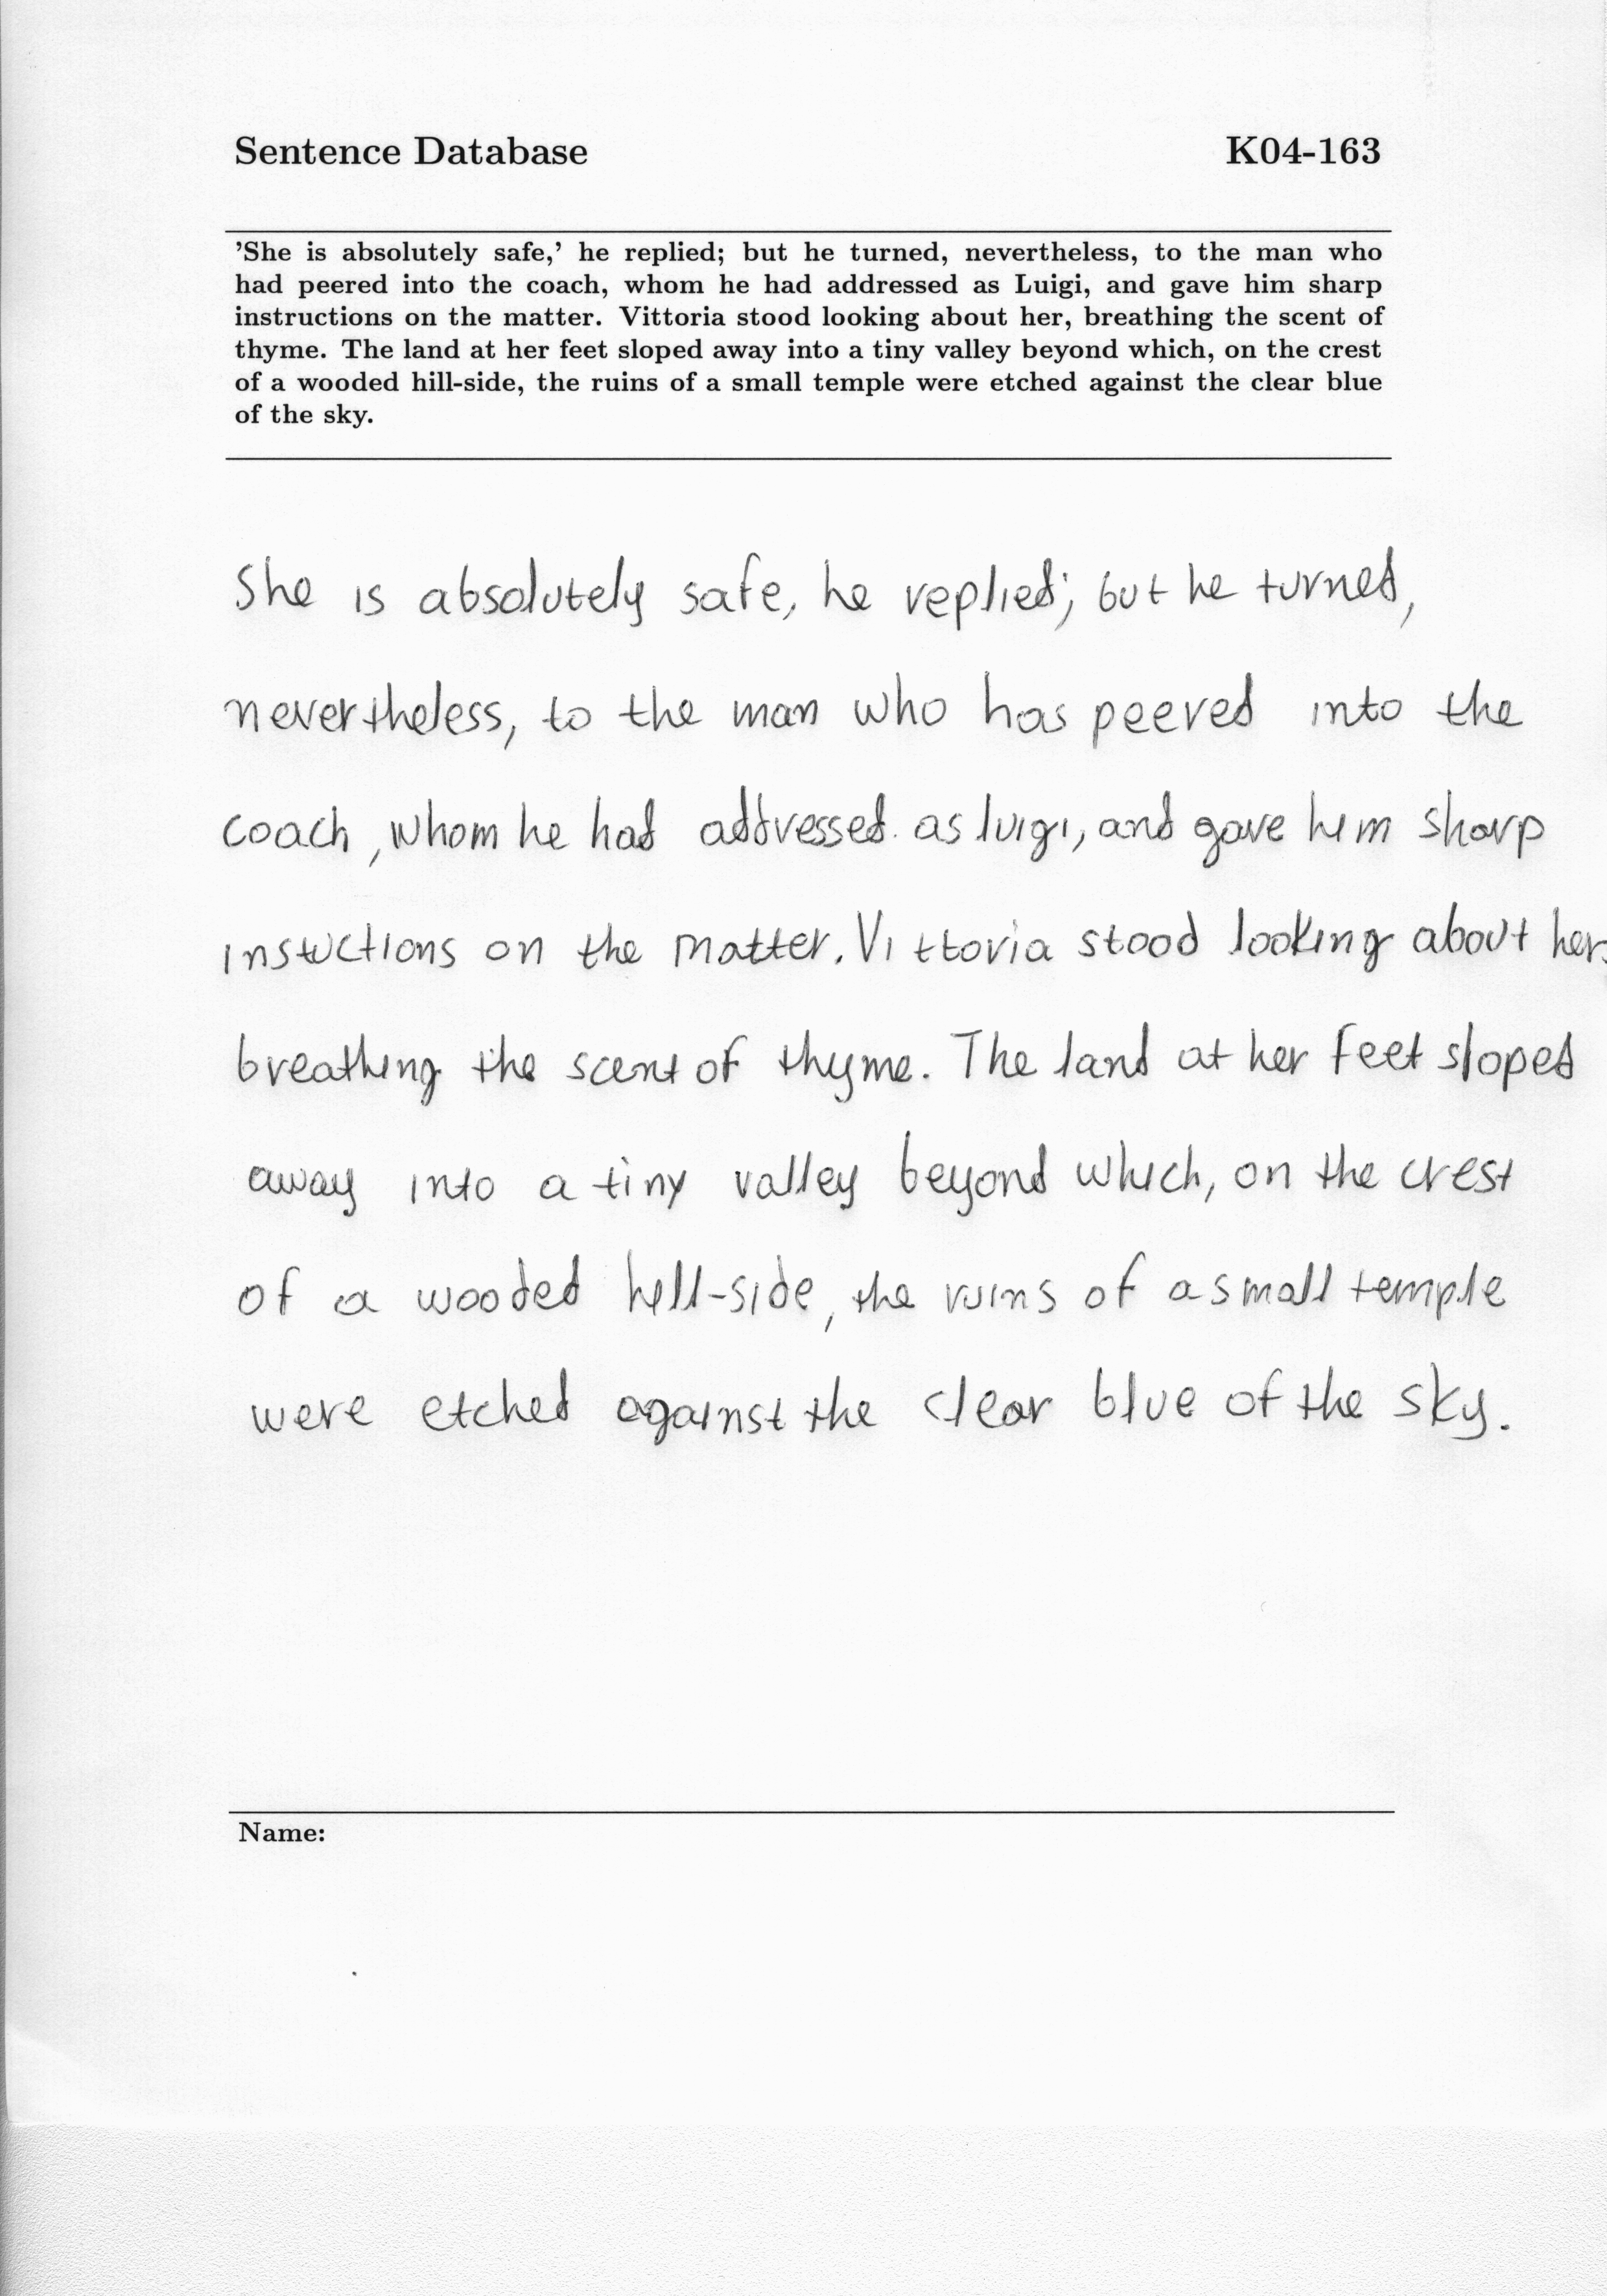 Sentence Database K04-163
'She is absolutely safe,' he replied; but he turned, nevertheless, to the man who
had peered into the coach, whom he had addressed as Luigi, and gave him sharp
instructions on the matter. Vittoria stood looking about her, breathing the scent of
thyme. The land at her feet sloped away into a tiny valley beyond which, on the crest
of a wooded hill-side, the ruins of a small temple were etched against the clear blue
of the sky.
She is absolutely safe, he replied; but he turned,
nevertheless, to the man who has peered into the
coach, whom he had addressed as luigi, and gave him sharp
instuctions on the matter. Vittoria stood looking about her,
breathing the scent of thyme. The land at her feet sloped
away into a tiny valley beyond which, on the crest
of a wooded hill-side, the ruins of a small temple
were etched against the clear blue of the sky.
Name: